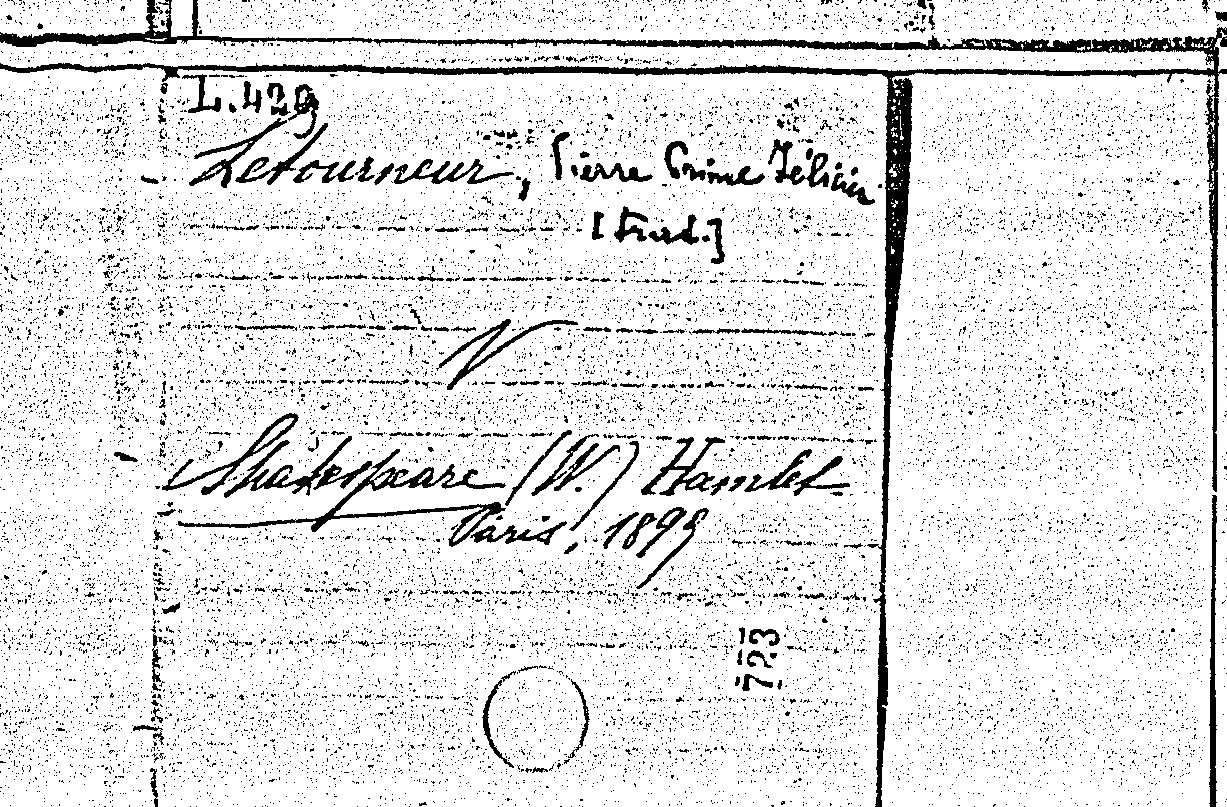 L.429
Letourneur, Pierre Prime Félicien
[Trad.]
V
Shakespeare (W.) Hamlet.
Paris, 1899
723